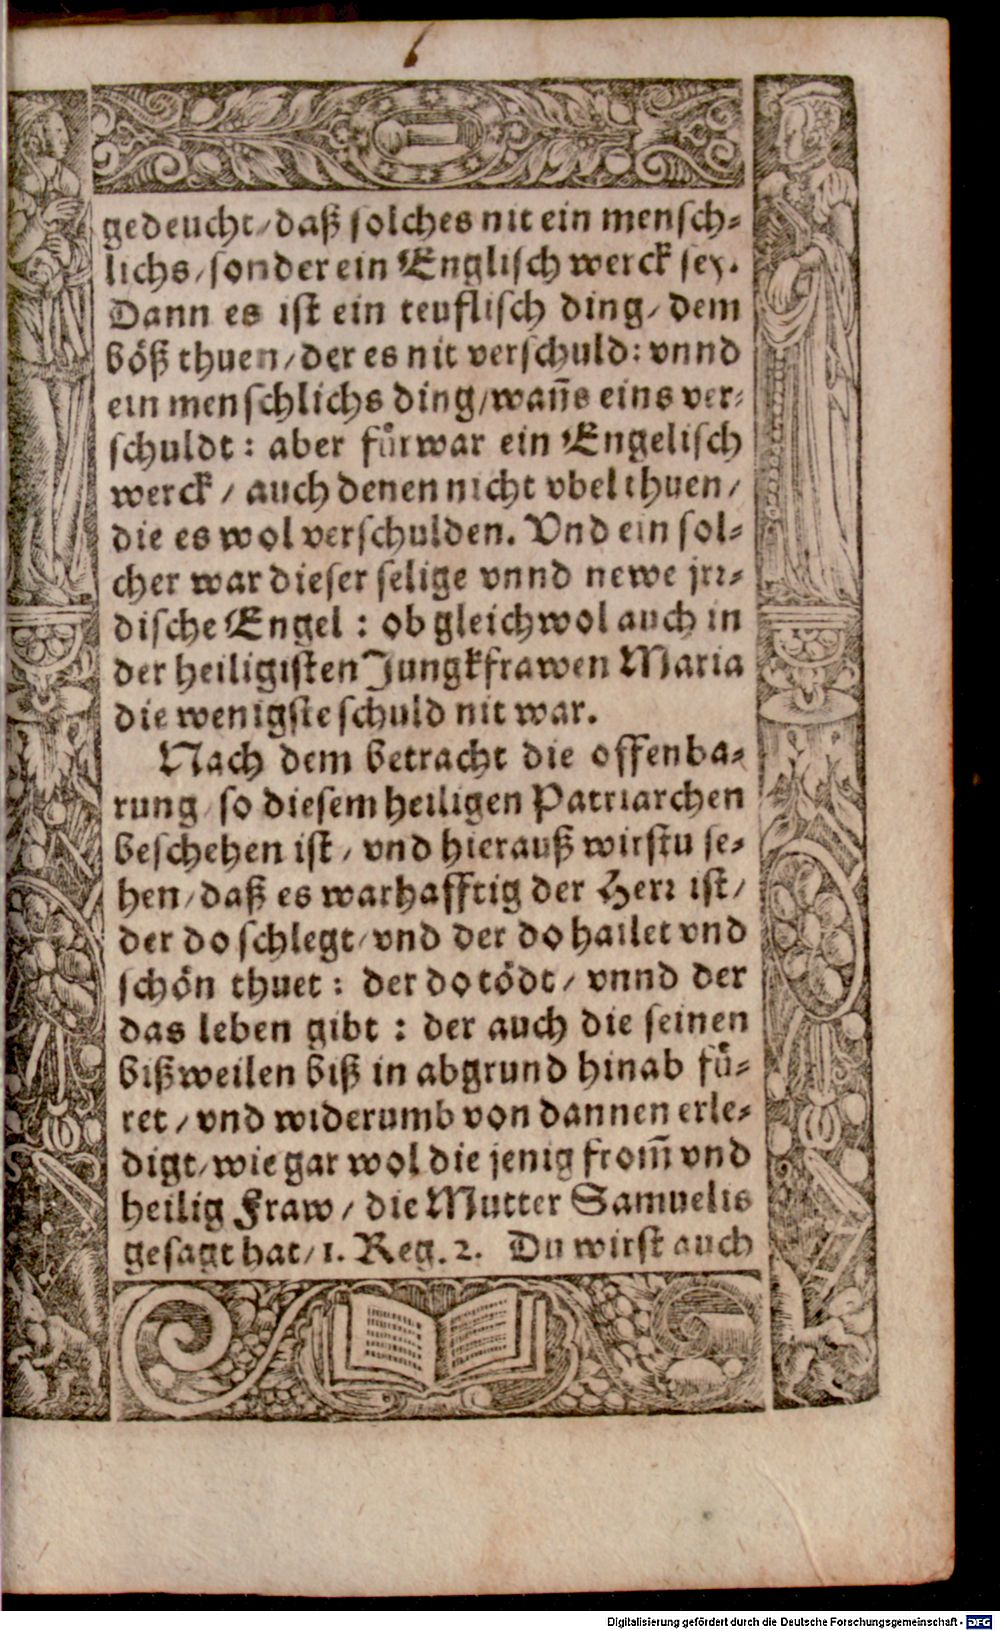 gedeucht/daß solches nit ein mensch-
lichs/sonder ein Englisch werck sey.
Dann es ist ein teuflisch ding/dem
böß thuen/der es nit verschuld: vnnd
ein menschlichs ding/wañs eins ver-
schuldt: aber fürwar ein Engelisch
werck/auch denen nicht vbel thuen/
die es wol verschulden. Vnd ein sol-
cher war dieser selige vnnd newe jrr-
dische Engel: ob gleichwol auch in
der heiligisten Jungkfrawen Maria
die wenigste schuld nit war.
Nach dem betracht die offenba-
rung/so diesem heiligen Patriarchen
beschehen ist/vnd hierauß wirstu se-
hen/daß es warhafftig der Herr ist/
der do schlegt/vnd der do hailet vnd
schön thuet: der do tödt/vnnd der
das leben gibt: der auch die seinen
bißweilen biß in abgrund hinab fü-
ret/vnd widerumb von dannen erle-
digt/wie gar wol die jenig from̃ vnd
heilig Fraw/die Mutter Samuelis
gesagt hat/1. Reg. 2. Du wirst auch
Digitalisierung gefördert durch die Deutsche Forschungsgemeinschaft - DFG